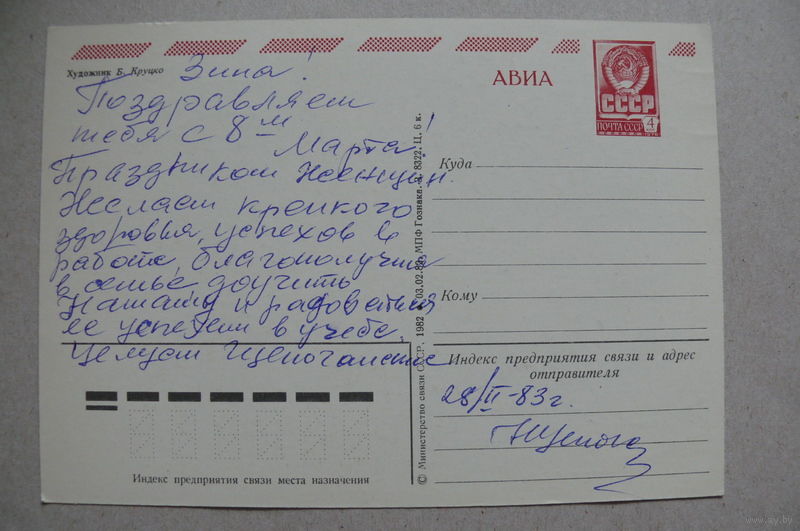 Художник Б. Круцко
АВИА
СССР
ПОЧТА СССР
4
Зина!
Поздравляем
тебя с 8м
Марта!
Праздником Женщин.
Желаем крепкого
здоровья, успехов в
работе, благополучия
в семье доучить
Наташу и радоваться
ее успехам в учебе.
Целуем
Куда
Кому
Индекс предприятия связи и адрес
отправителя
28/II-83г.
Индекс предприятия связи места назначения
© Министерство связи СССР, 1982 03.02.82. МПФ Гознака. 8322. Ц. 6 к.
www.ay.by